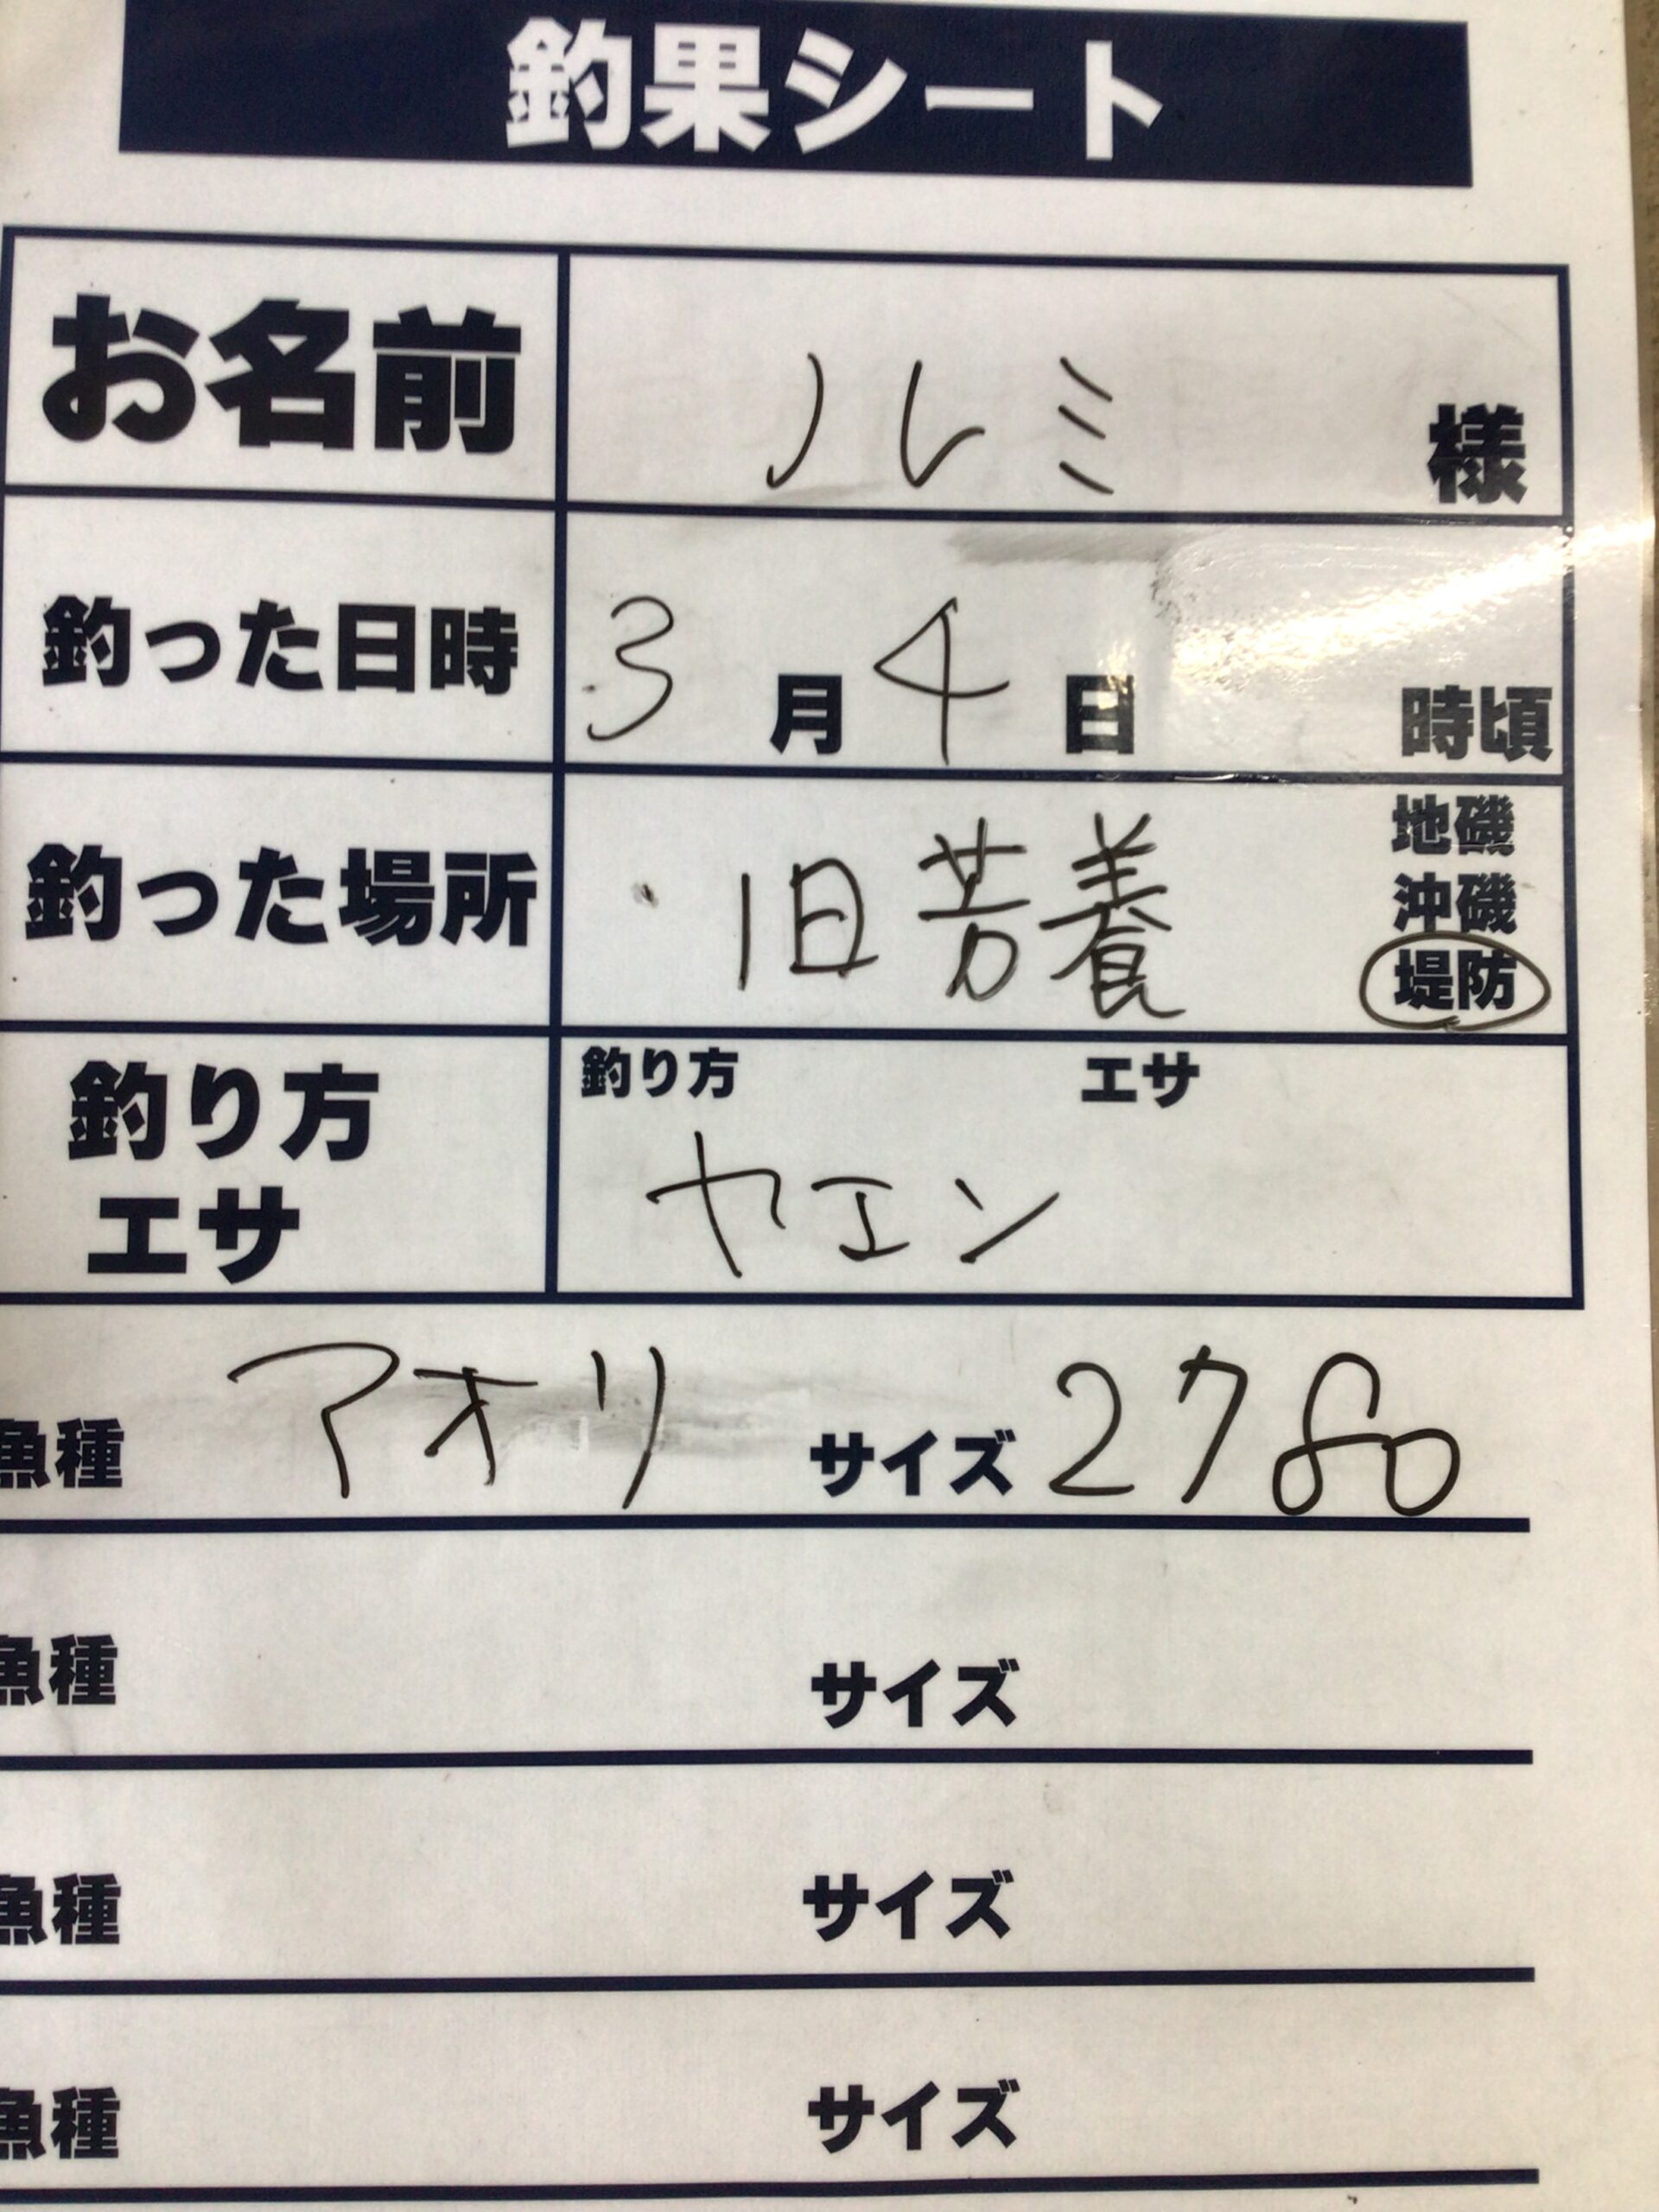 釣果シート
お名前 ルミ 様
釣った日時 3月4日 時頃
釣った場所 旧芳養 地磯 沖磯 堤防
釣り方 エサ
釣り方 エサ
ヤエン
魚種 アオリ サイズ 2780
魚種 サイズ
魚種 サイズ
魚種 サイズ